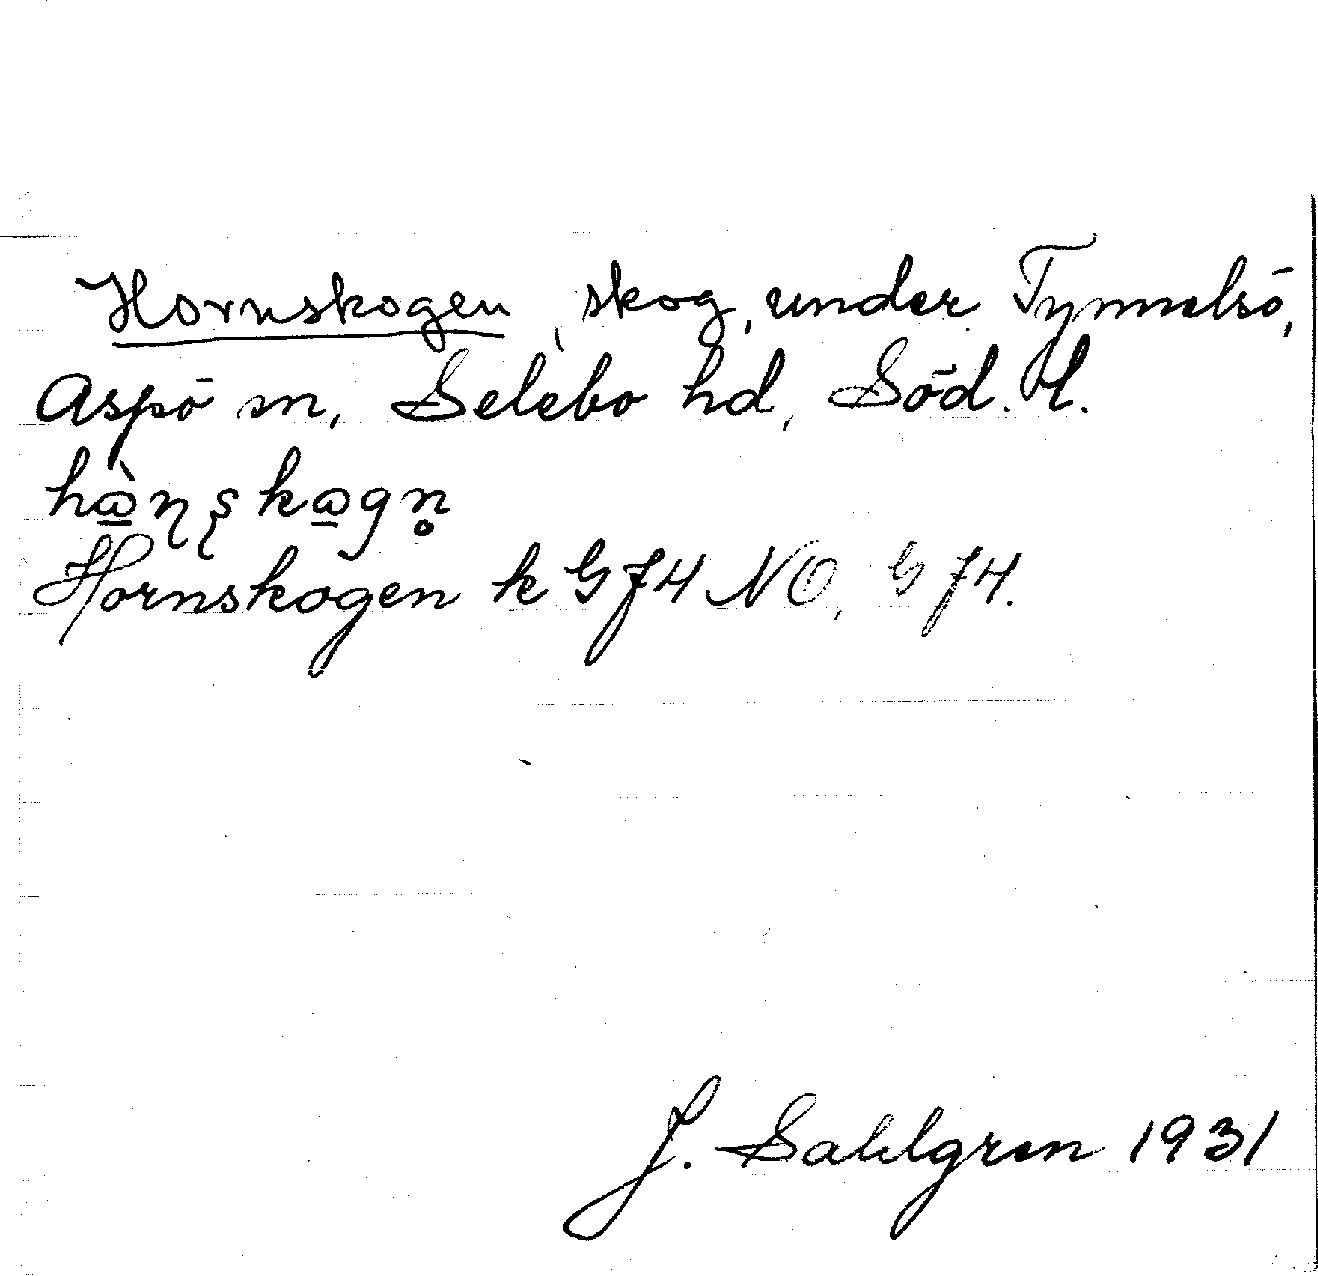 Hornskogen, skog, under Tynnelsö,
Aspö sn, Selebo hd, Söd. l.
Hornskogen k G f 4 NO, G f 4.
J. Sahlgren 1931